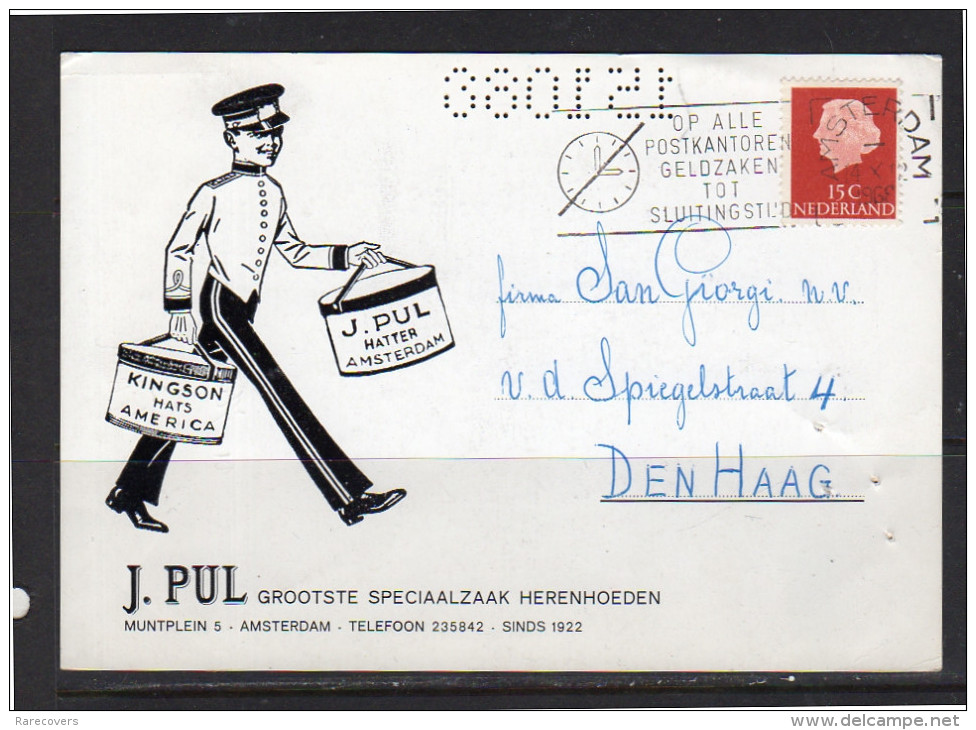 OP ALLE
POSTKANTOREN
GELDZAKEN
TOT
SLUITINGSTIJD
AMSTERDAM
15 C
NEDERLAND
J. PUL
HATTER
AMSTERDAM
KINGSON
HATS
AMERICA
firma San Giorgi. n.v.
v. d. Spiegelstraat 4
DEN HAAG
J. PUL GROOTSTE SPECIAALZAAK HERENHOEDEN
MUNTPLEIN 5 - AMSTERDAM - TELEFOON 235842 - SINDS 1922
Rarecovers
www.delcampe.net